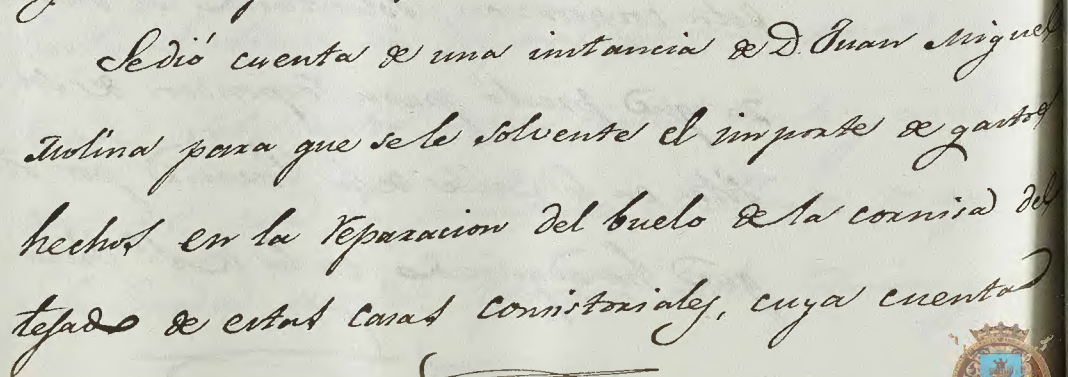 Sedió cuenta de una instancia de D. Juan Miguel
Molina para que sele solvente el importe de gastos
hechos en la reparacion del buelo de la cornisa del
tejado de estas casas consistoriales, cuya cuenta